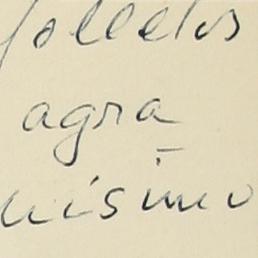 folletos
agra
nísimo